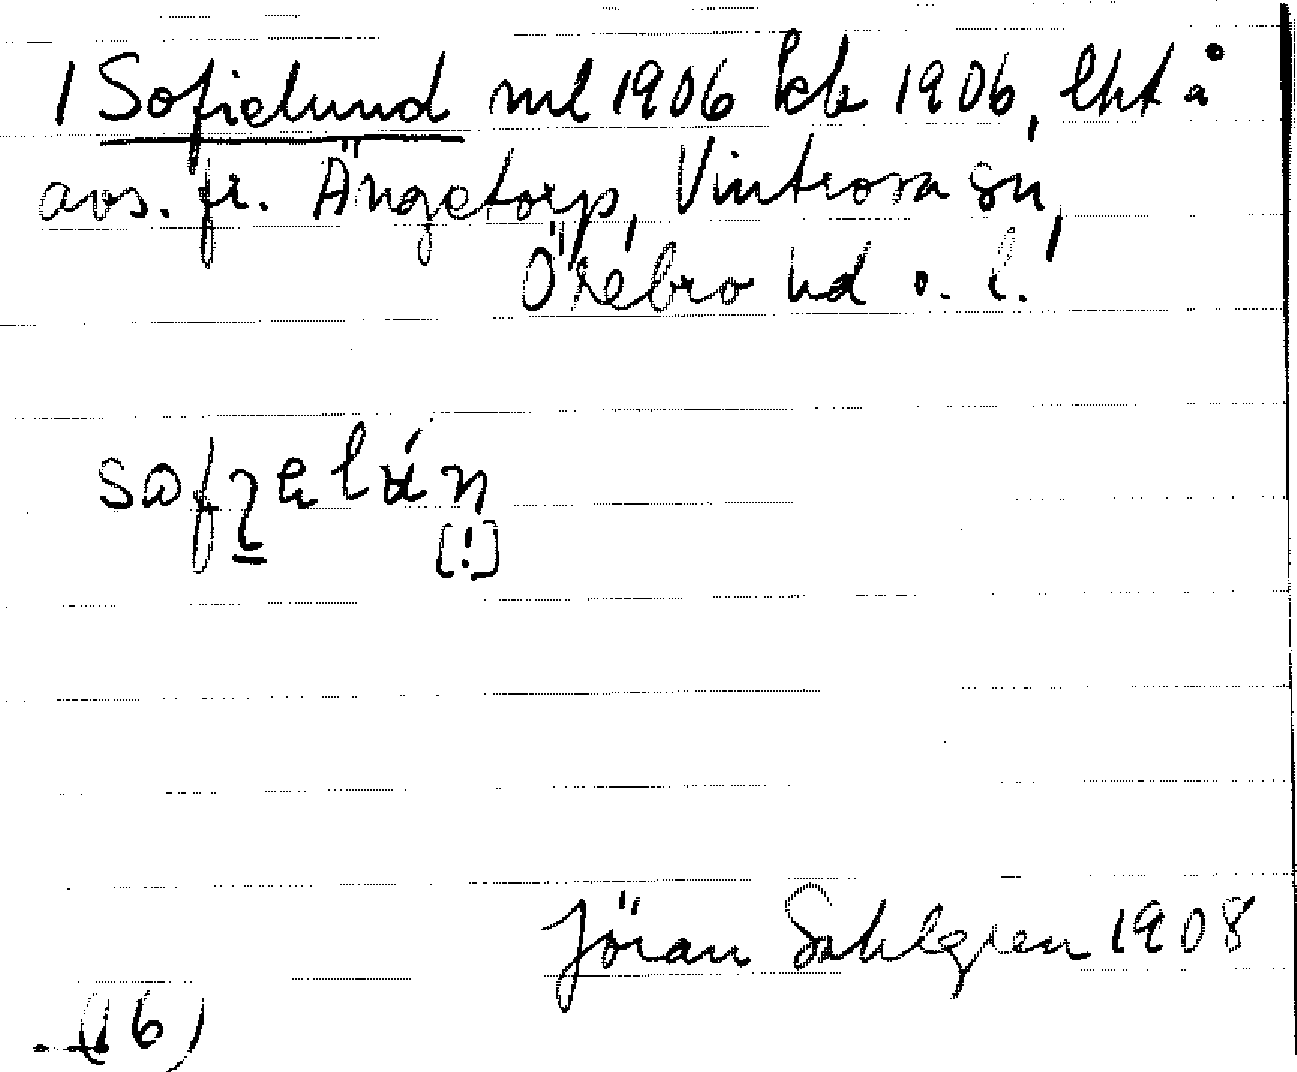 1 Sofielund ml 1906 kb 1906, lht å
avs. fr. Ängetorp, Vintrosa sn,
Örebro hd o. l.
[!]
Jöran Sahlgren 1908
(16)